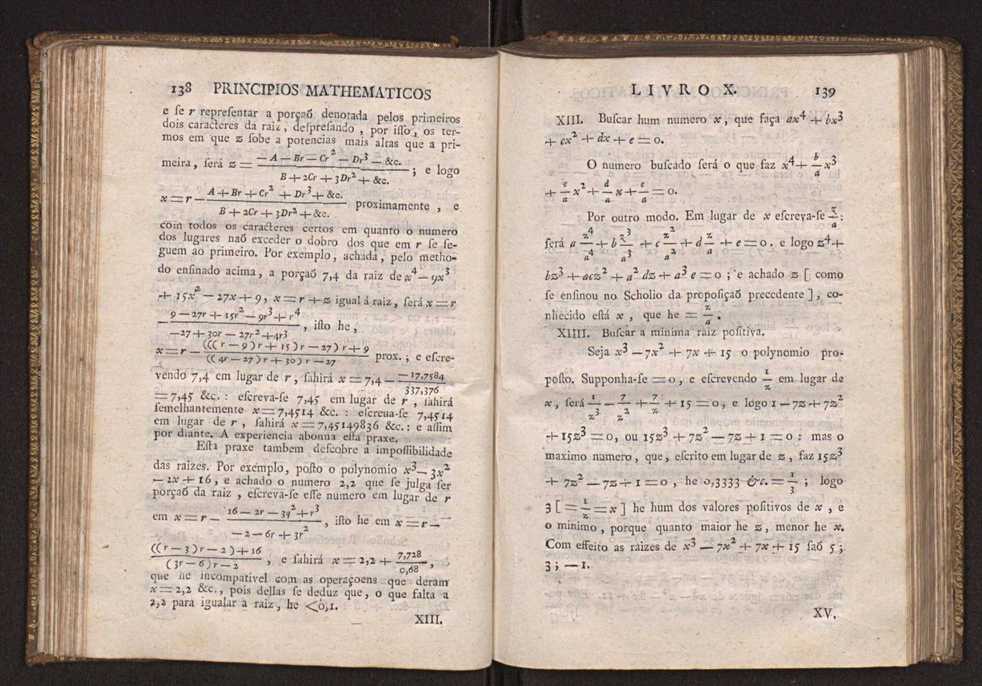 138 PRINCIPIOS MATHEMATICOS
e ſe r repreſentar a porçaõ denotada pelos primeiros
dois caracteres da raiz, deſpreſando, por iſſo, os ter-
mos em que z ſobe a potencias mais altas que a pri-
meira, ſerá z = (— A — Br — Cr² — Dr³ — &c.)/(B + 2Cr + 3Dr² + &c.); e logo
x = r — (A + Br + Cr² + Dr³ + &c.)/(B + 2Cr + 3Dr² + &c.) proximamente, e
com todos os caracteres certos em quanto o numero
dos lugares naõ exceder o dobro dos que em r ſe ſe-
guem ao primeiro. Por exemplo, achada, pelo metho-
do enſinado acima, a porçaõ 7,4 da raiz de x⁴ — 9x³
+ 15x² — 27x + 9, x = r + z igual á raiz, ſerá x = r
(9 — 27r + 15r² — 9r³ + r⁴)/(—27 + 30r — 27r² + 4r³), iſto he,
x = r — (((r — 9)r + 15)r — 27)r + 9/((4r — 27)r + 30)r — 27 prox.; e eſcre-
vendo 7,4 em lugar de r, ſahirá x = 7,4 — —17,7584/337,376
= 7,45 &c.: eſcreva-ſe 7,45 em lugar de r, ſahirá
ſemelhantemente x = 7,4514 &c.: eſcreua-ſe 7,4514
em lugar de r, ſahirá x = 7,45149836 &c.: e aſſim
por diante. A experiencia abonna eſſa praxe.
Eſta praxe tambem deſcobre a impoſſibilidade
das raizes. Por exemplo, poſto o polynomio x³ — 3x²
— 2x + 16, e achado o numero 2,2 que ſe julga ſer
porçaõ da raiz, eſcreva-ſe eſſe numero em lugar de r
em x = r — (16 — 2r — 3q² + r³)/(—2 — 6r + 3r²), iſto he em x = r —
((r — 3)r — 2) + 16/(3r — 6)r — 2, e ſahirá x = 2,2 + 7,728/0,68,
que he incompativel com as operaçoens que deram
x = 2,2 &c., pois dellas ſe deduz que, o que falta a
2,2 para igualar a raiz, he < 0,1.
XIII.
LIVRO X. 139
XIII. Buſcar hum numero x, que faça ax⁴ + bx³
+ cx² + dx + e = 0.
O numero buſcado ſerá o que faz x⁴ + b/a x³
+ c/a x² + d/a x + e/a = 0.
Por outro modo. Em lugar de x eſcreva-ſe z/a:
ſerá a z⁴/a⁴ + b z³/a³ + c z²/a² + d z/a + e = 0. e logo z⁴ +
bz³ + acz² + a² dz + a³ e = 0; e achado z [ como
ſe enſinou no Scholio da propoſiçaõ precedente ], co-
nhecido eſtá x, que he = z/a.
XIIII. Buſcar a minima raiz poſitiva.
Seja x³ — 7x² + 7x + 15 o polynomio pro-
poſto. Supponha-ſe = 0, e eſcrevendo 1/z em lugar de
x, ſerá 1/z³ — 7/z² + 7/z + 15 = 0, e logo 1 — 7z + 7z²
+ 15z³ = 0, ou 15z³ + 7z² — 7z + 1 = 0: mas o
maximo numero, que, eſcrito em lugar de z, faz 15z³
+ 7z² — 7z + 1 = 0, he 0,3333 &c. = 1/3; logo
3 [ = 1/z = x ] he hum dos valores poſitivos de x, e
o minimo, porque quanto maior he z, menor he x.
Com effeito as raizes de x³ — 7x² + 7x + 15 ſaõ 5;
3; — 1.
XV.